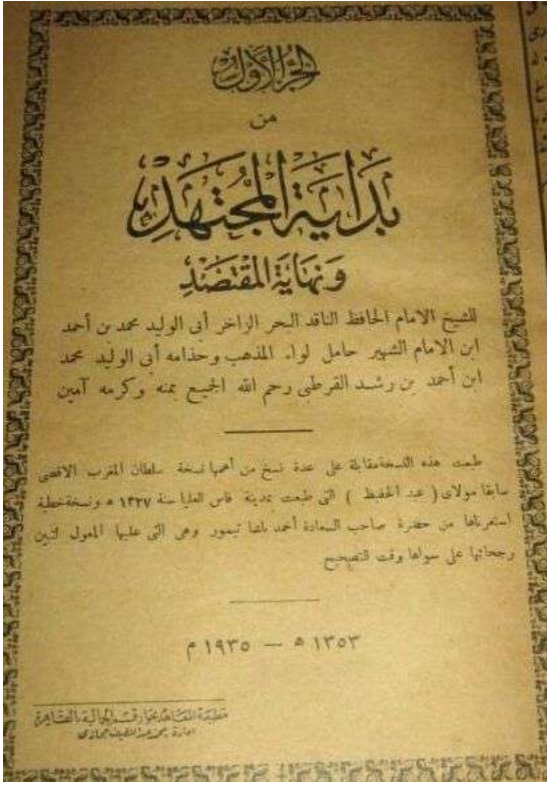 الجزء الأول
من
بداية المجتهد
ونهاية المقتصد
للشيخ الامام الحافظ الناقد البحر الزاخر أبى الوليد محمد بن أحمد
ابن الامام الشهير حامل لواء المذهب وحذامه أبى الوليد محمد
ابن أحمد بن رشد القرطبى رحم الله الجميع بمنه وكرمه آمين
طبعت هذه النسخة مقابلة على عدة نسخ من أهمها نسخة سلطان المغرب الاقصى
سابقا مولاى ( عبد الحفيظ ) التى طبعت بمدينة فاس العليا سنة ١٣٢٧ ه ونسخة خطية
استعرناها من حضرة صاحب السعادة أحمد باشا تيمور وهى التى عليها المعول لتبين
رجحانها على سواها وقت التصحيح
١٣٥٣ ه — ١٩٣٥ م
مطبعة المعاهد بجوار قسم الجمالية بالقاهرة
ادارة محمد عبد اللطيف حجازى